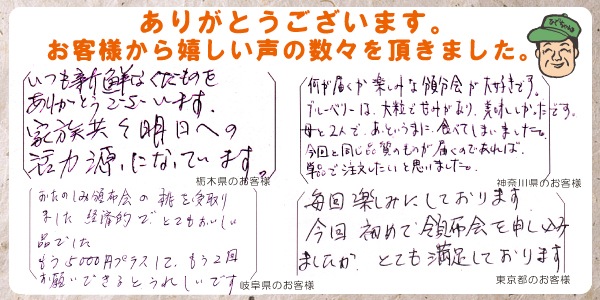 ありがとうございます。
お客様から嬉しい声の数々を頂きました。
ひでちゃん
いつも新鮮なくだものを
ありがとうございます。
家族共々明日への
活力源になっています。
栃木県のお客様
何が届くか楽しみな頒布会が大好きです。
ブルーベリーは、大粒で甘みがあり、美味しかったです。
母と2人で、あっというまに食べてしまいました。
今回と同じ品質のものが届くのであれば、
単品で注文したいと思いました。
神奈川県のお客様
おたのしみ頒布会の桃を受取り
ました 経済的で とてもおいしい
品でした
もう5000円プラスして、もう2回
お願いできるとうれしいです
岐阜県のお客様
毎回楽しみにしております
今回 初めて 頒布会を申し込み
ましたが、とても満足しております
東京都のお客様